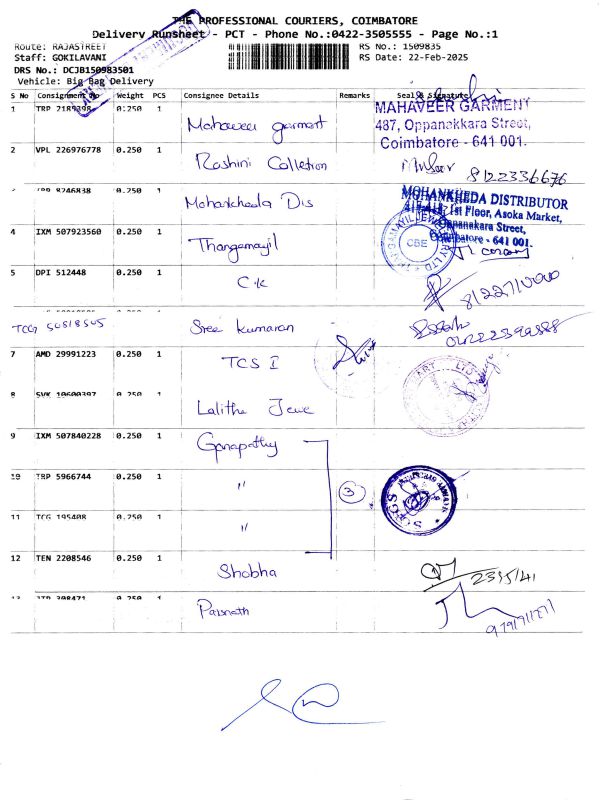 THE PROFESSIONAL COURIERS, COIMBATORE
Delivery Runsheet - PCT - Phone No.:0422-3505555 - Page No.:1
Route: RAJASTREET
RS No.: 1509835
Staff: GOKILAVANI
RS Date: 22-Feb-2025
DRS No.: DCJB150983501
Vehicle: Big Bag Delivery
S No Consignment No Weight PCS Consignee Details Remarks Seal & Signature
1 TRP 2189398 0.250 1 Mahaveer garment
MAHAVEER GARMENT
487, Oppanakkara Street,
Coimbatore - 641 001.
2 VPL 226976778 0.250 1 Rashini Colletion
8122336676
TRP 8246838 0.250 1 Mohankheda Dis
MOHANKHEDA DISTRIBUTOR
1st Floor, Asoka Market,
Oppanakara Street,
Coimbatore - 641 001.
4 IXM 507923560 0.250 1 Thangamayil
CBE
5 DPI 512448 0.250 1 C.K
TCG 50818505 Sree Kumaran
7 AMD 29991223 0.250 1 TCS I
8 SVK 10600397 0.250 1 Lalitha Jewe
9 IXM 507840228 0.250 1 Ganapathy
10 TRP 5966744 0.250 1 "
3
11 TCG 195408 0.250 1 "
12 TEN 2208546 0.250 1 Shobha
2395141
13 308471 0.250 1 Parsnath